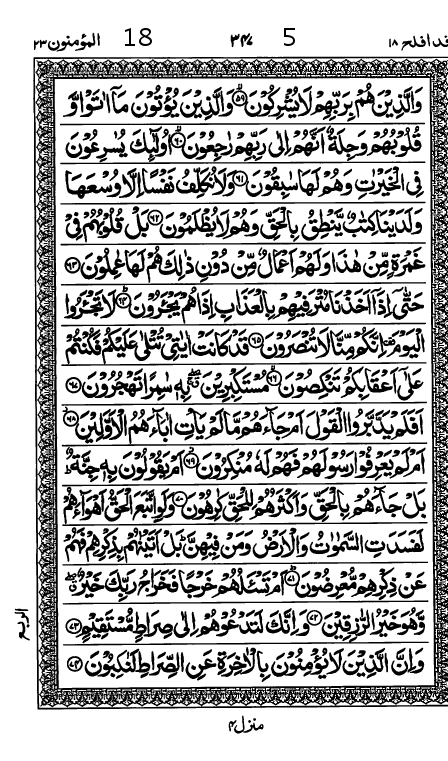 قد افلح ١٨ 5 ٣٤٧ 18 المؤمنون ٢٣
وَالَّذِيْنَ هُمْ بِرَبِّهِمْ لَا يُشْرِكُوْنَ ۙ﴿۵۹﴾ وَالَّذِيْنَ يُؤْتُوْنَ مَاۤ اٰتَوْا وَّ
قُلُوْبُهُمْ وَجِلَةٌ اَنَّهُمْ اِلٰى رَبِّهِمْ رٰجِعُوْنَ ۙ﴿۶۰﴾ اُولٰٓئِكَ يُسٰرِعُوْنَ
فِى الْخَيْرٰتِ وَهُمْ لَهَا سٰبِقُوْنَ ﴿۶۱﴾ وَلَا نُكَلِّفُ نَفْسًا اِلَّا وُسْعَهَا
وَلَدَيْنَا كِتٰبٌ يَّنْطِقُ بِالْحَقِّ وَهُمْ لَا يُظْلَمُوْنَ ﴿۶۲﴾ بَلْ قُلُوْبُهُمْ فِىْ
غَمْرَةٍ مِّنْ هٰذَا وَلَهُمْ اَعْمَالٌ مِّنْ دُوْنِ ذٰلِكَ هُمْ لَهَا عٰمِلُوْنَ ﴿۶۳﴾
حَتّٰٓى اِذَاۤ اَخَذْنَا مُتْرَفِيْهِمْ بِالْعَذَابِ اِذَا هُمْ يَجْـَٔرُوْنَ ؕ﴿۶۴﴾ لَا تَجْـَٔرُوا
الْيَوْمَ اِنَّكُمْ مِّنَّا لَا تُنْصَرُوْنَ ﴿۶۵﴾ قَدْ كَانَتْ اٰيٰتِىْ تُتْلٰى عَلَيْكُمْ فَكُنْتُمْ
عَلٰٓى اَعْقَابِكُمْ تَنْكِصُوْنَ ۙ﴿۶۶﴾ مُسْتَكْبِرِيْنَ بِهٖ سٰمِرًا تَهْجُرُوْنَ ﴿۶۷﴾
اَفَلَمْ يَدَّبَّرُوا الْقَوْلَ اَمْ جَآءَهُمْ مَّا لَمْ يَاْتِ اٰبَآءَهُمُ الْاَوَّلِيْنَ ﴿۶۸﴾
اَمْ لَمْ يَعْرِفُوْا رَسُوْلَهُمْ فَهُمْ لَهٗ مُنْكِرُوْنَ ﴿۶۹﴾ اَمْ يَقُوْلُوْنَ بِهٖ جِنَّةٌ ؕ
بَلْ جَآءَهُمْ بِالْحَقِّ وَاَكْثَرُهُمْ لِلْحَقِّ كٰرِهُوْنَ ﴿۷۰﴾ وَلَوِ اتَّبَعَ الْحَقُّ اَهْوَآءَهُمْ
لَفَسَدَتِ السَّمٰوٰتُ وَالْاَرْضُ وَمَنْ فِيْهِنَّ ؕ بَلْ اَتَيْنٰهُمْ بِذِكْرِهِمْ فَهُمْ
عَنْ ذِكْرِهِمْ مُّعْرِضُوْنَ ؕ﴿۷۱﴾ اَمْ تَسْـَٔلُهُمْ خَرْجًا فَخَرَاجُ رَبِّكَ خَيْرٌ ۖ
وَّهُوَ خَيْرُ الرّٰزِقِيْنَ ﴿۷۲﴾ وَاِنَّكَ لَتَدْعُوْهُمْ اِلٰى صِرَاطٍ مُّسْتَقِيْمٍ ﴿۷۳﴾
وَاِنَّ الَّذِيْنَ لَا يُؤْمِنُوْنَ بِالْاٰخِرَةِ عَنِ الصِّرَاطِ لَنٰكِبُوْنَ ﴿۷۴﴾
الربع
منزل ۴